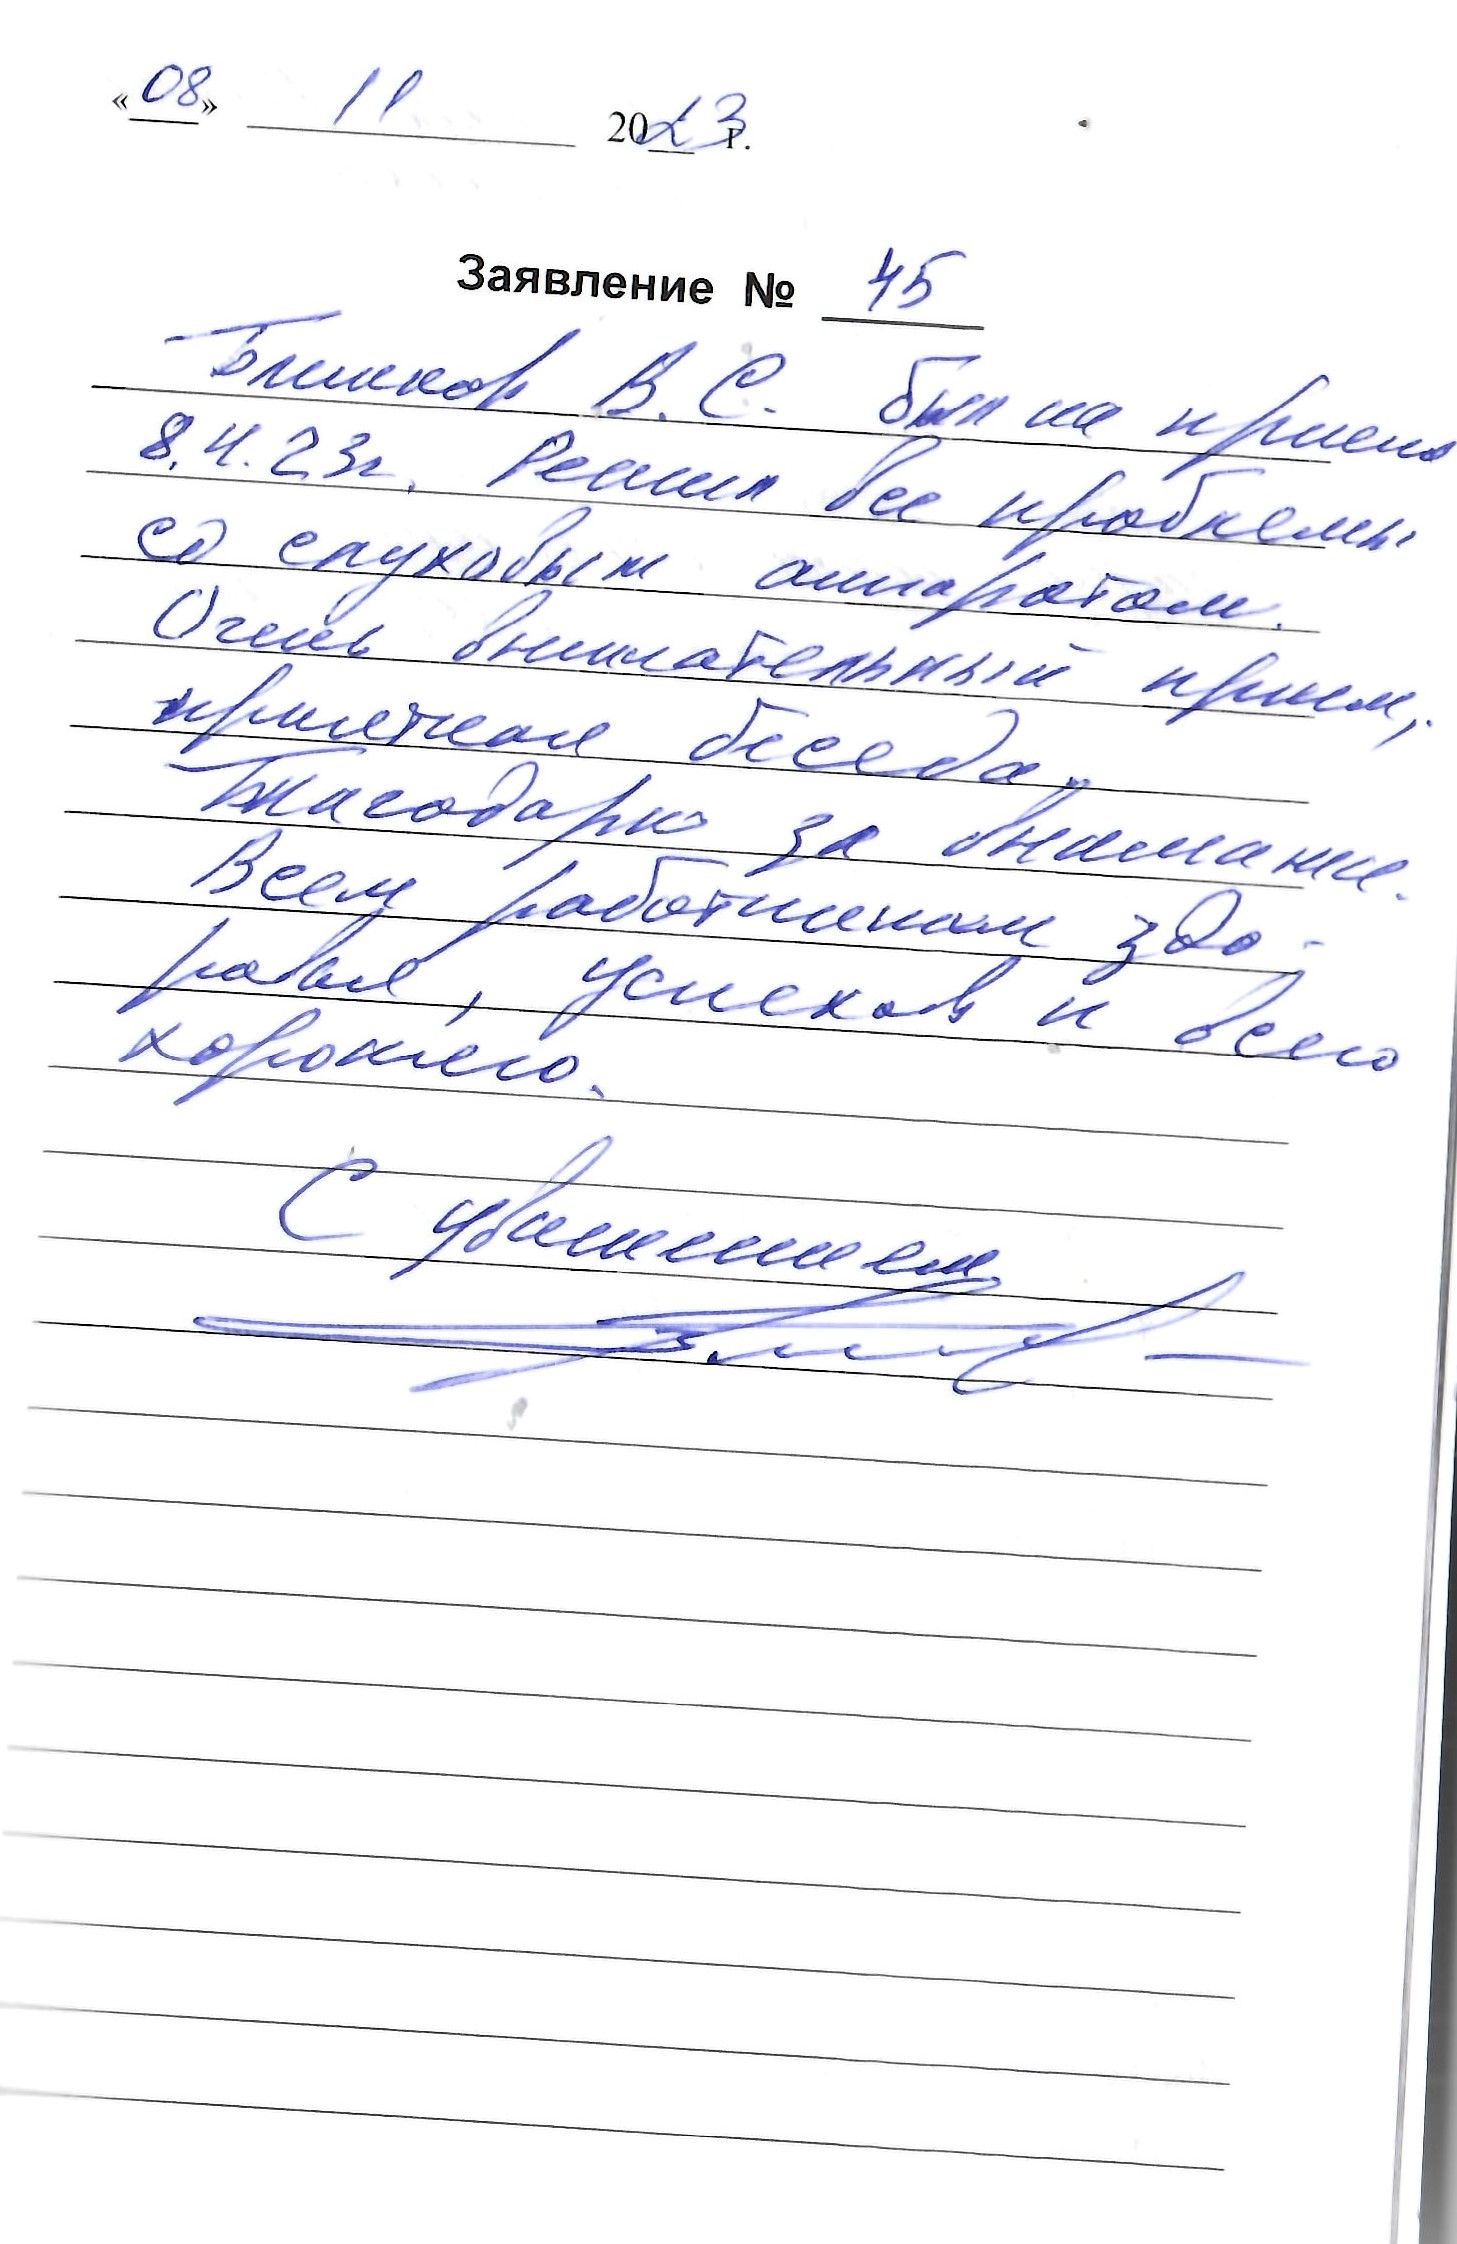 «08» 11 2023 г.
Заявление № 45
Блинков В. С. был на приеме
8.11.23г. Решил все проблемы
со слуховым аппаратом.
Очень внимательный прием,
приятная беседа.
Благодарю за внимание.
Всем работникам здо-
ровья, успехов и всего
хорошего.
С уважением